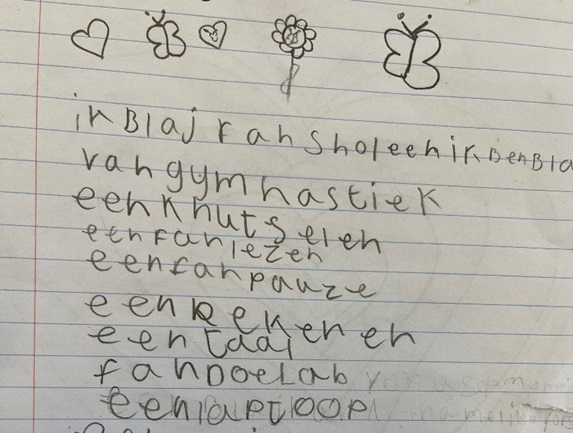 ik Blaj van sholeenikBenBla
vangymnastiek
eenknutselen
eenvanlezen
eenvanpauze
eenRekenen
eentaal
fanDoelab
eenlaptoop